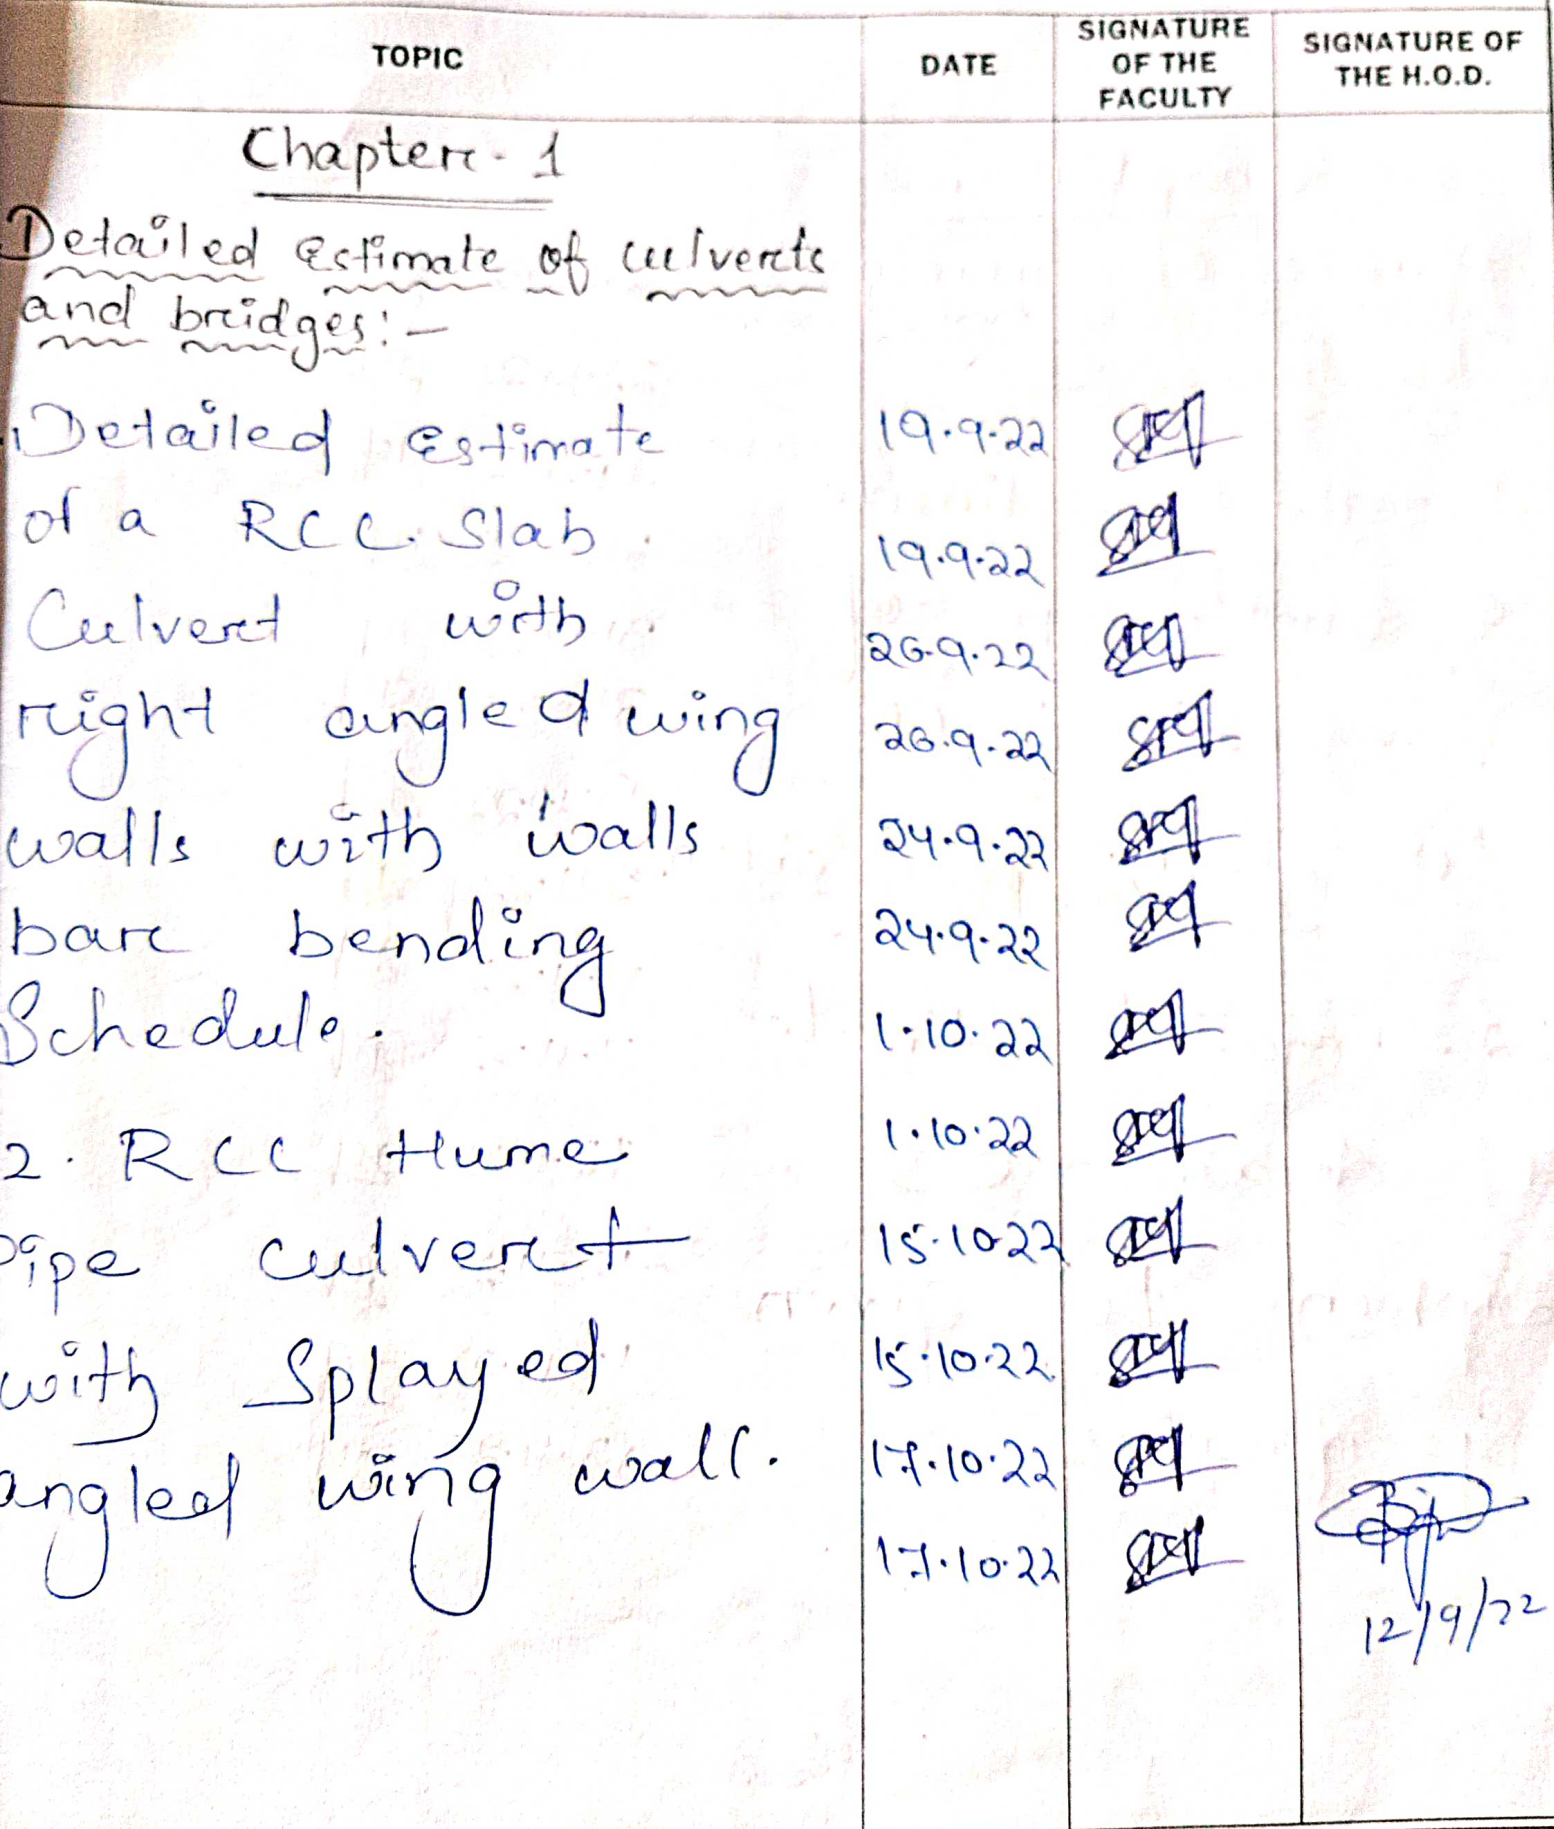 TOPIC DATE SIGNATURE OF THE FACULTY SIGNATURE OF THE H.O.D.
Chapter - 1
Detailed Estimate of culverts
and bridges:-
1. Detailed Estimate 19.9.22
of a RCC. Slab 19.9.22
Culvert with 26.9.22
right angled wing 26.9.22
walls with walls 24.9.22
bar bending 24.9.22
Schedule. 1.10.22
2. RCC Hume 1.10.22
pipe culvert 15.10.22
with Splayed 15.10.22
angled wing wall. 17.10.22
17.10.22
12/9/22